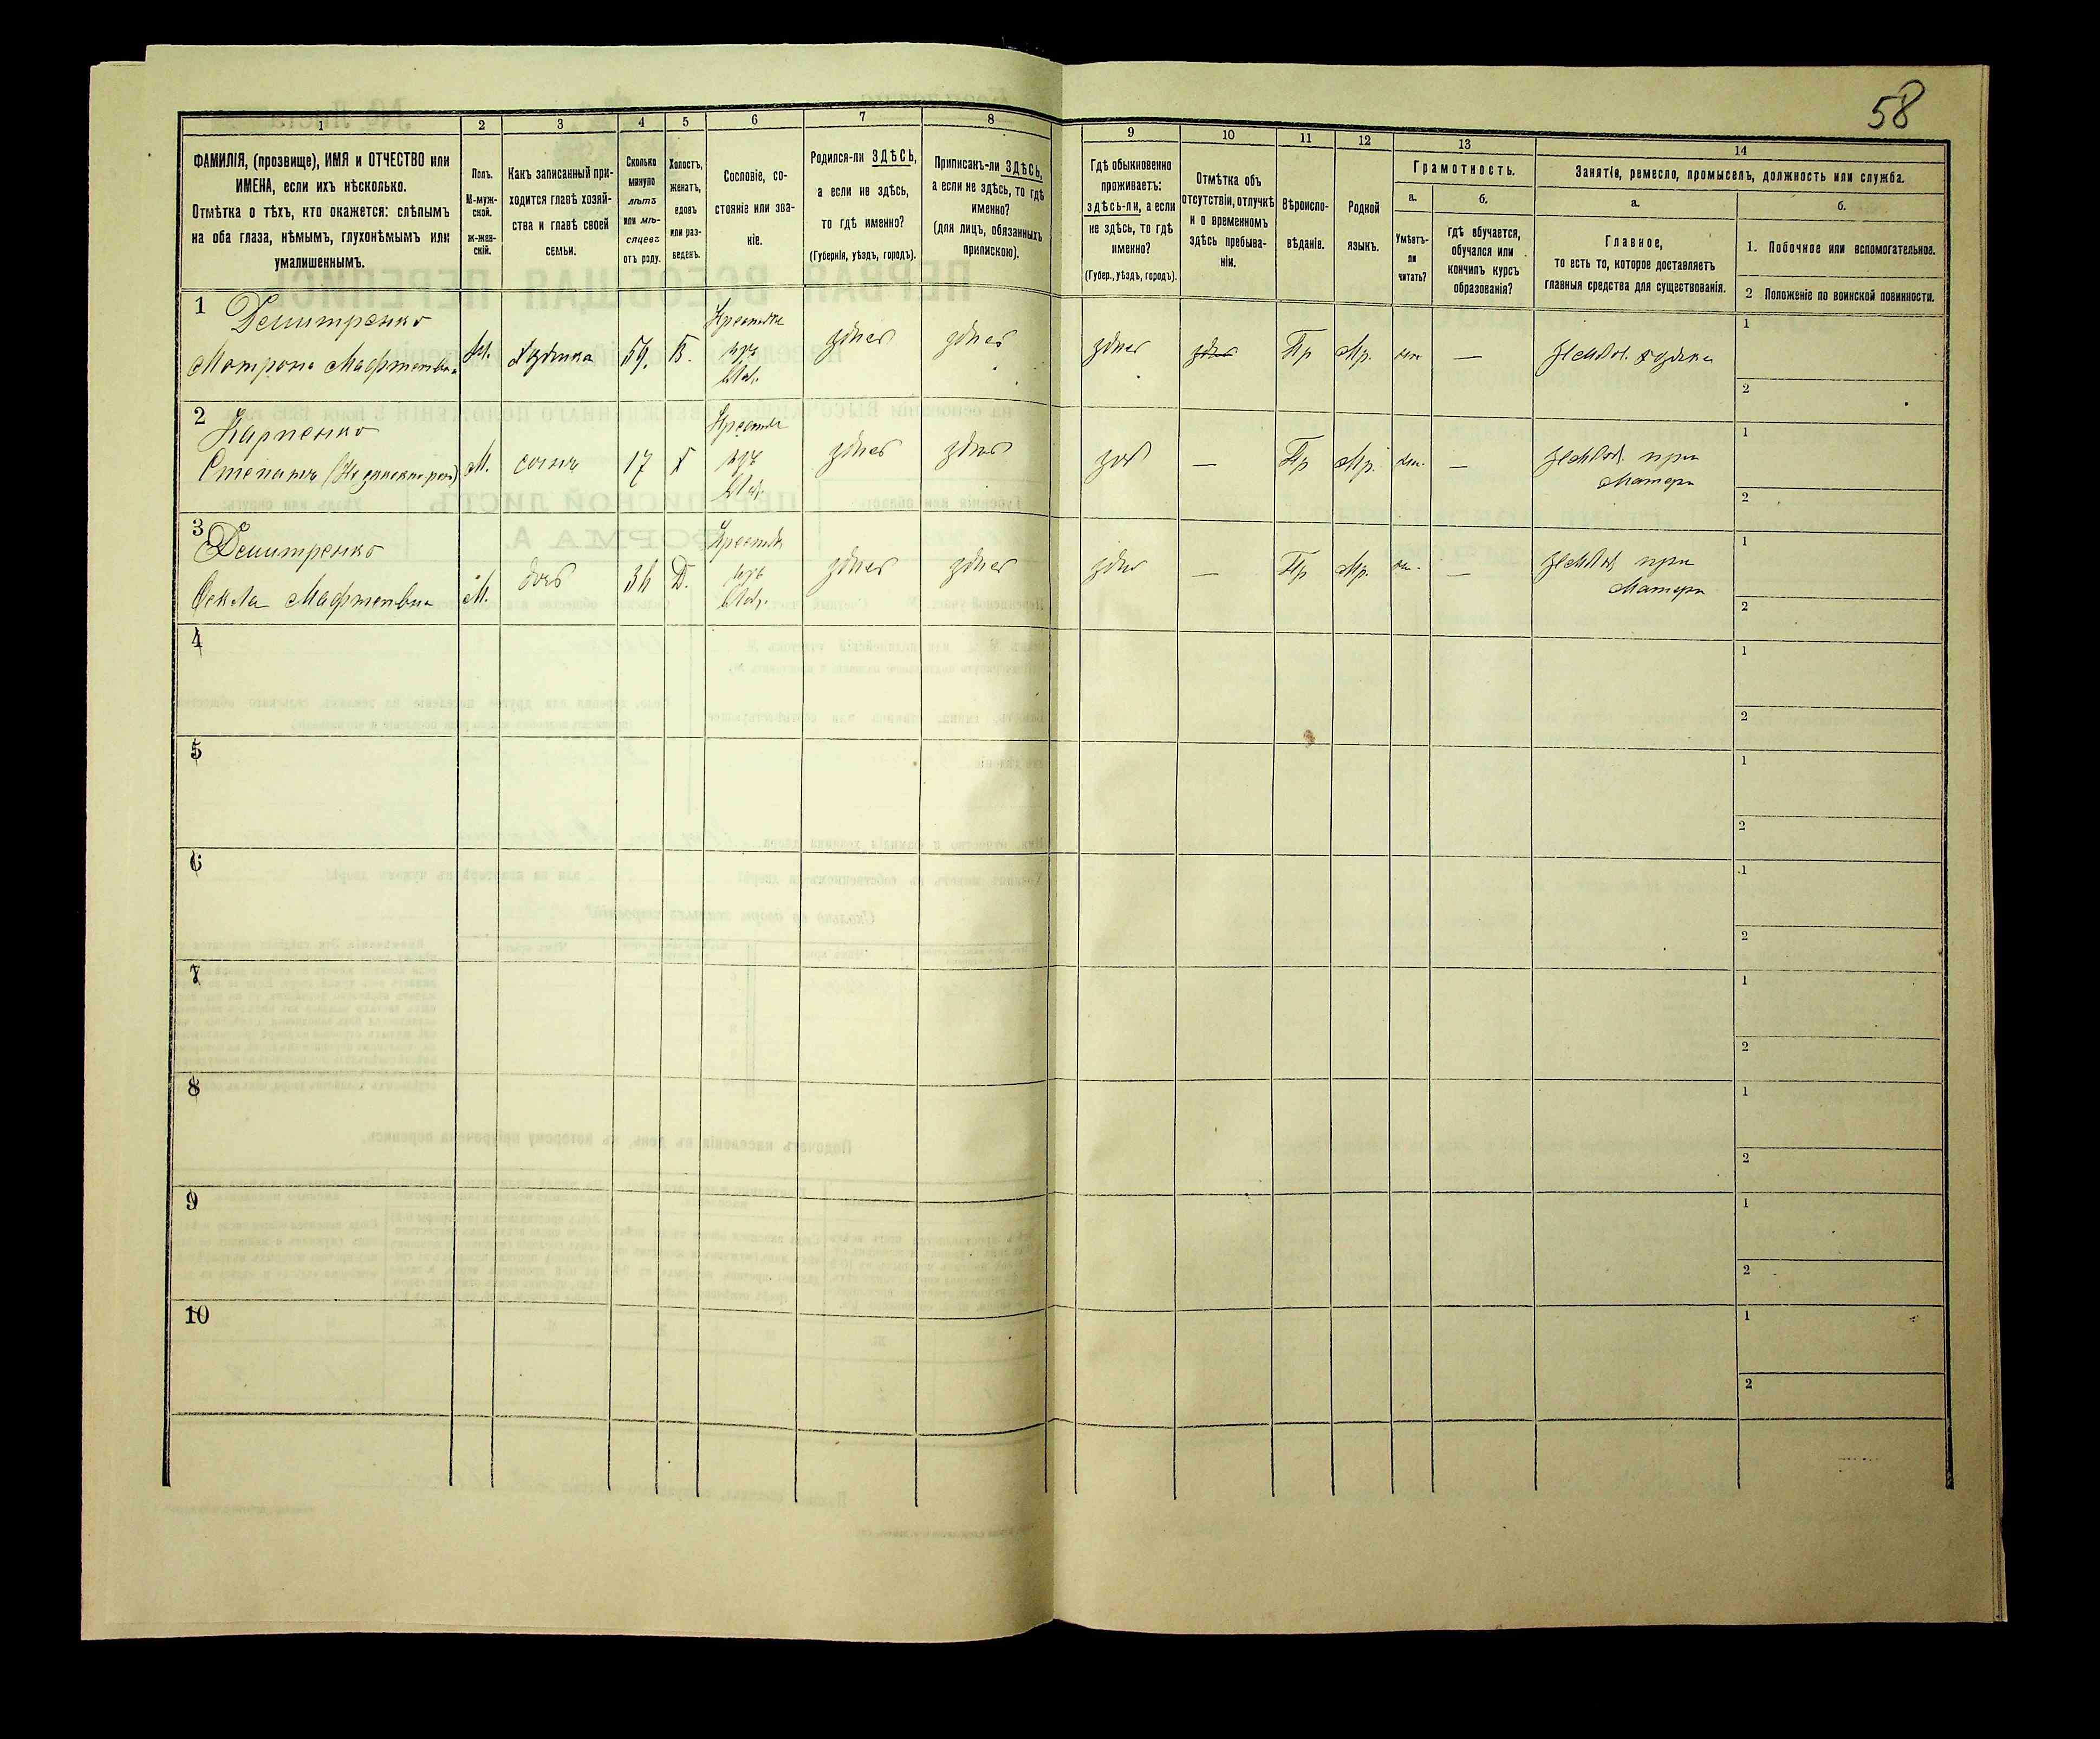 58
1
2
3
4
5
6
7
8
9
10
11
12
13
14
ФАМИЛІЯ, (прозвище), ИМЯ и ОТЧЕСТВО или
ИМЕНА, если ихъ нѣсколько.
Отмѣтка о тѣхъ, кто окажется: слѣпымъ
на оба глаза, нѣмымъ, глухонѣмымъ или
умалишеннымъ.
Полъ.
М-муж-
ской.
ж-жен-
скій.
Какъ записанный при-
ходится главѣ хозяй-
ства и главѣ своей
семьи.
Сколько
минуло
лѣтъ
или мѣ-
сяцевъ
отъ роду.
Холостъ,
женатъ,
вдовъ
или раз-
веденъ.
Сословіе, со-
стояніе или зва-
ніе.
Родился-ли ЗДѢСЬ,
а если не здѣсь,
то гдѣ именно?
(Губернія, уѣздъ, городъ).
Приписанъ-ли ЗДѢСЬ,
а если не здѣсь, то гдѣ
именно?
(для лицъ, обязанныхъ
припискою).
Гдѣ обыкновенно
проживаетъ:
здѣсь-ли, а если
не здѣсь, то гдѣ
именно?
(Губер., уѣздъ, городъ).
Отмѣтка объ
отсутствіи, отлучкѣ
и о временномъ
здѣсь пребыва-
ніи.
Вѣроиспо-
вѣданіе.
Родной
языкъ.
Грамотность.
а.
Умѣетъ-
ли
читать?
б.
гдѣ обучается,
обучался или
кончилъ курсъ
образованія?
Занятіе, ремесло, промыселъ, должность или служба.
а.
Главное,
то есть то, которое доставляетъ
главныя средства для существованія.
б.
1. Побочное или вспомогательное.
2 Положеніе по воинской повинности.
1 Демитренко
Мотрона
59.
В.
здѣсь
здѣсь
здѣсь
Пр
Мр.
—
1
2
2 Карпенко
Степанъ
М.
сынъ
17
Х
здѣсь
здѣсь
—
Пр
Мр.
—
при
Матери
1
2
3 Демитренко
Ѳекла
дочь
Д.
здѣсь
здѣсь
здѣсь
—
Пр
Мр.
—
при
Матери
1
2
4
1
2
5
1
2
6
1
2
7
1
2
8
1
2
9
1
2
10
1
2